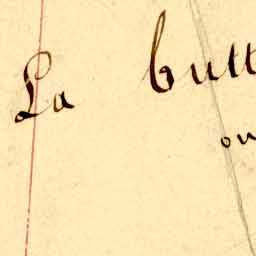 La butt
ou